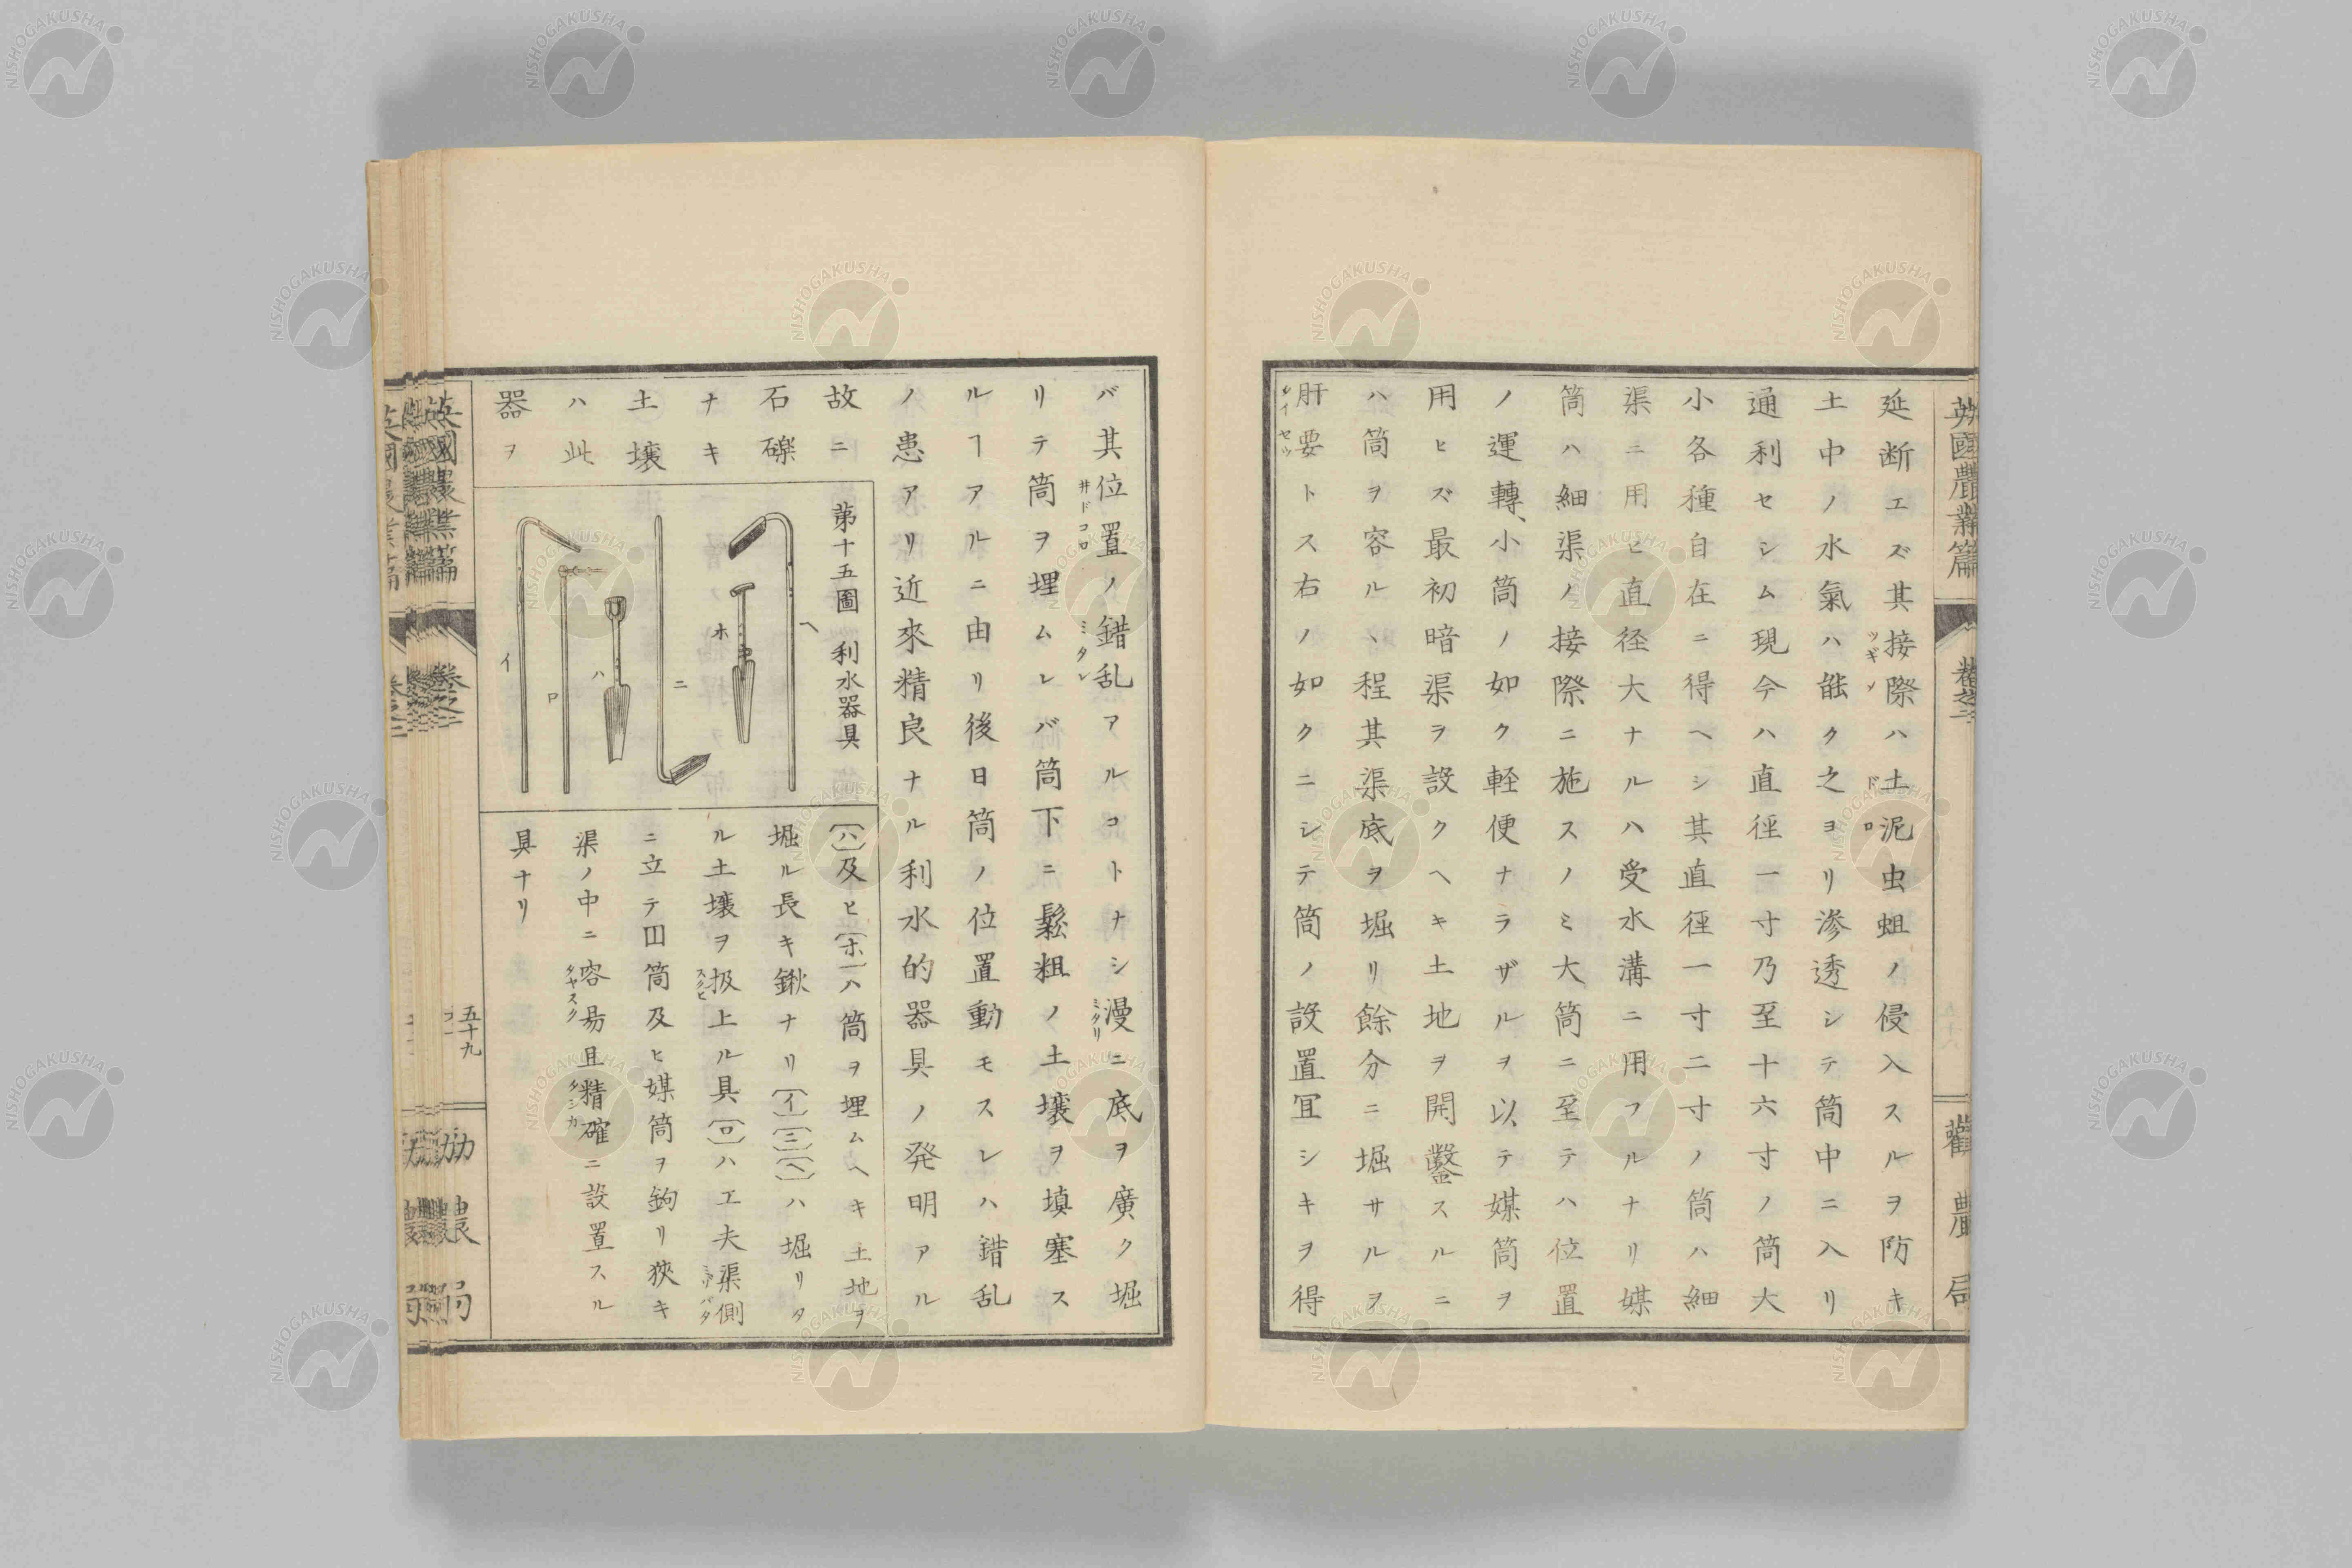 英國農業篇
卷之二
勸農局
延断エズ其接際ハ土泥虫蛆ノ侵入スルヲ防キ
ツギメ
ドロ
土中ノ水氣ハ能ク之ヨリ渗透シテ筒中ニ入リ
通利セシム現今ハ直徑一寸乃至十六寸ノ筒大
小各種自在ニ得ヘシ其直徑一寸二寸ノ筒ハ細
渠ニ用ヒ直径大ナルハ受水溝ニ用フルナリ媒
筒ハ細渠ノ接際ニ施スノミ大筒ニ至テハ位置
ノ運轉、小筒ノ如ク軽便ナラザルヲ以テ媒筒ヲ
用ヒズ最初暗渠ヲ設クヘキ土地ヲ開鑿スルニ
ハ筒ヲ容ルヽ程其渠底ヲ堀リ餘分ニ堀サルヲ
肝要トス右ノ如クニシテ筒ノ設置冝シキヲ得
タイセツ
バ其位置ノ錯乱アルコトナシ漫ニ底ヲ廣ク堀
井ドコロ
ミタレ
ミタリ
リテ筒ヲ埋ムレバ筒下ニ鬆粗ノ土壌ヲ填塞ス
ルヿアルニ由リ後日筒ノ位置動モスレハ錯乱
ノ患アリ近來精良ナル利水的器具ノ発明アル
故ニ
石礫
ナキ
土壌
ハ此
器ヲ
第十五圖 利水器具
ヘ
ホ
ニ
ハ
ロ
イ
(ハ)及ヒ(ホ)ハ筒ヲ埋ムヘキ土地ヲ
堀ル長キ鍬ナリ(イ)(ニ)(ヘ)ハ堀リタ
ル土壌ヲ扱上ル具(ロ)ハ工夫渠側
スクヒ
ミゾバタ
ニ立テ凹筒及ヒ媒筒ヲ鉤リ狹キ
渠ノ中ニ容易且精確ニ設置スル
タヤスク
タシカ
具ナリ
英國農業篇
卷之二
五十九
勸農局